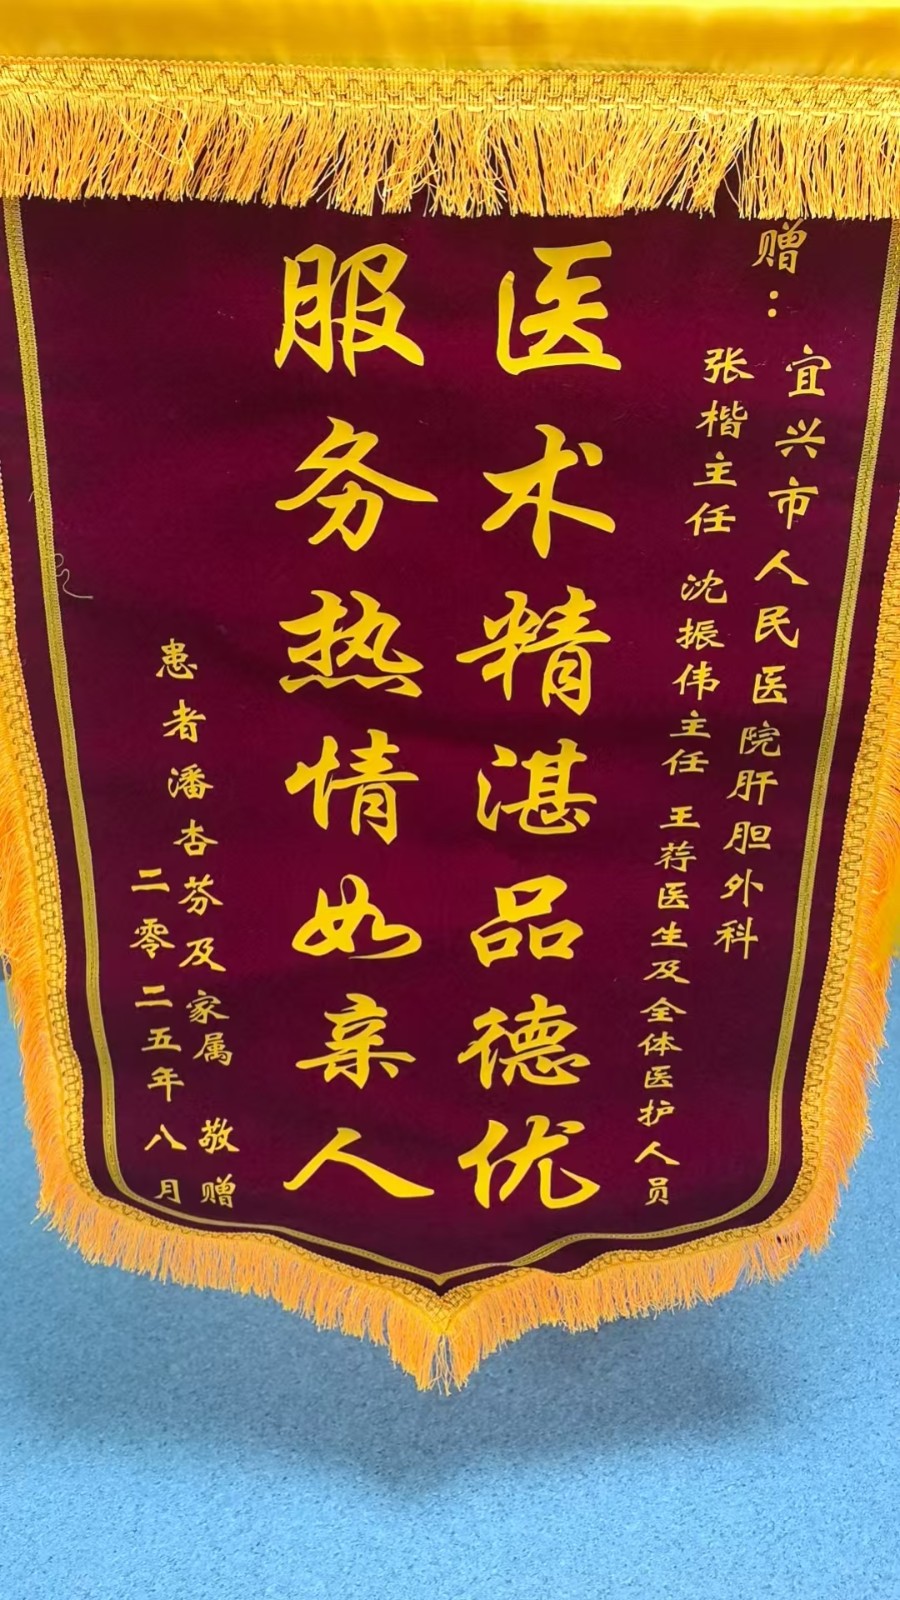 赠：
宜兴市人民医院肝胆外科
张楷主任 沈振伟主任 王荐医生及全体医护人员
医术精湛品德优
服务热情如亲人
患者潘杏芬及家属 敬赠
二零二五年八月